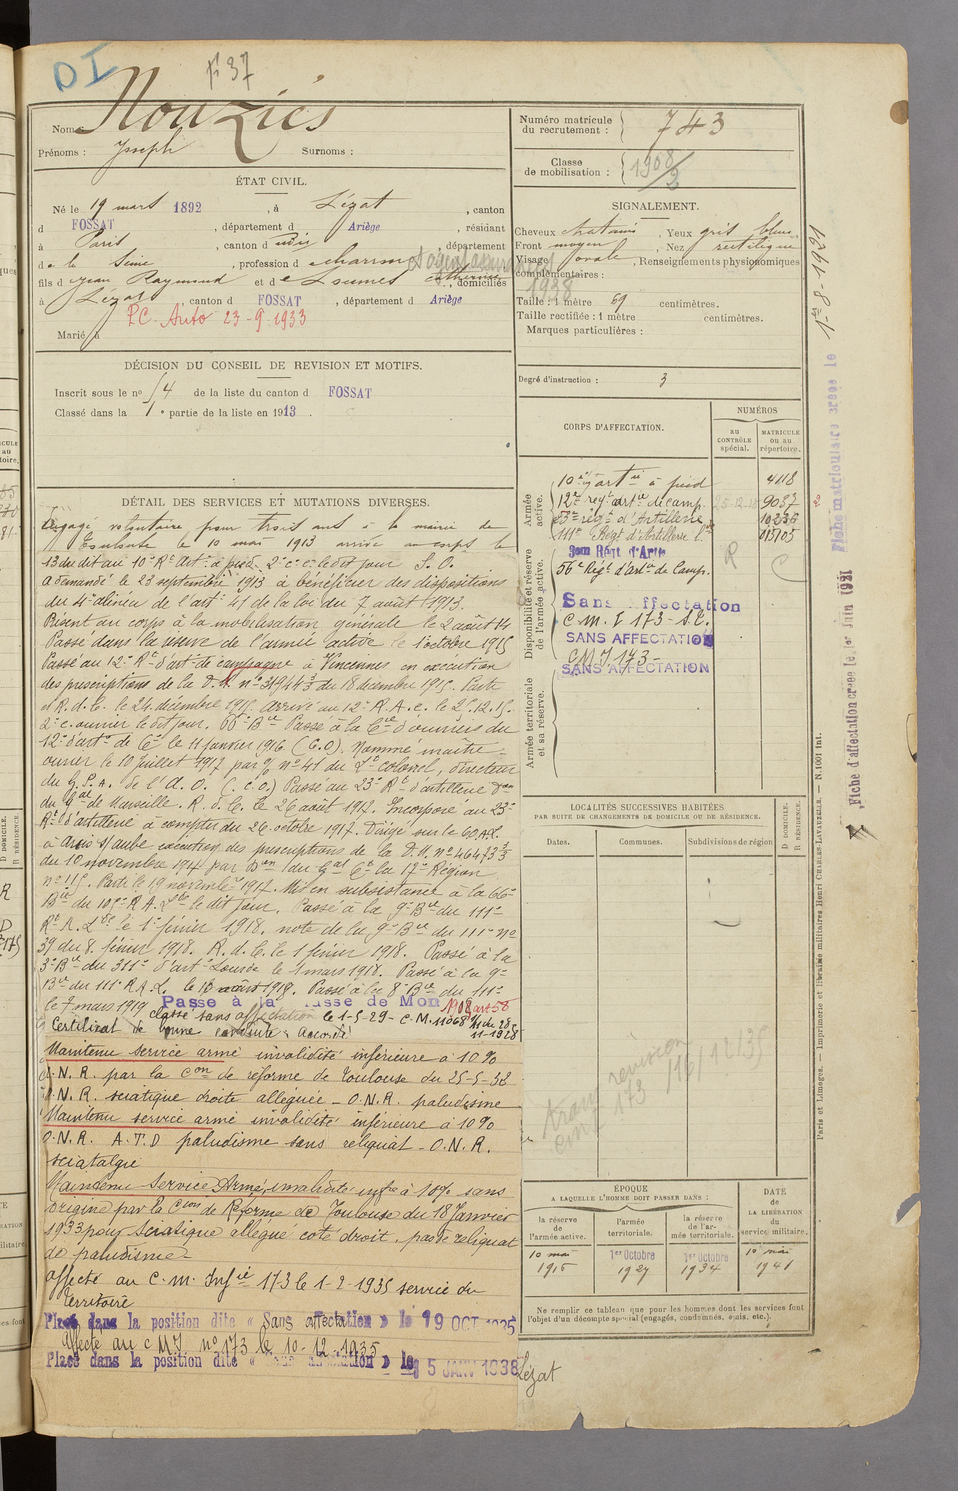 DI
F 37
Nom : Nouziés
Prénoms : Joseph Surnoms :
ÉTAT CIVIL.
Né le 19 mars 1892, à Lézat, canton
d FOSSAT, département d Ariège, résidant
à Paris, canton d, département
de la Seine, profession d charron
fils d Jean Raymond et d Loumes Catherine, domiciliés
à Lézat, canton d FOSSAT, département d Ariège
P.C. Auto 23-9-1933
Marié à
DÉCISION DU CONSEIL DE REVISION ET MOTIFS.
Inscrit sous le no 54 de la liste du canton d FOSSAT
Classé dans la 1e partie de la liste en 1913.
DÉTAIL DES SERVICES ET MUTATIONS DIVERSES.
Engagé volontaire pour trois ans à la mairie de
Toulouse le 10 mai 1913 arrivé au corps le
13 du dit au 10e Rt Art. à pied. 2e c. le dit jour S.O.
a demandé le 23 septembre 1913 à bénéficier des dispositions
du 4e alinéa de l'art. 41 de la loi du 7 août 1913.
Présent au corps à la mobilisation générale le 2 août 14
Passé dans la réserve de l'armée active le 1 octobre 1915
Passé au 12e Rt d'art. de campagne à Vincennes en exécution
des prescriptions de la D.M. no 31944 3/3 du 18 décembre 1915. Parti
et R.d.C. le 24 décembre 1915. Arrivé au 12e R.A.C. le 25.12.15.
2e c. ouvrier le dit jour. 66e Bie Passé à la Cie d'ouvriers du
12e d'arte de Cne le 11 janvier 1916 (C.O). Nommé maître-
ouvrier le 10 juillet 1917 par no 41 du Lt Colonel, directeur
du G.P.A. de l'A.O. (C.O.) Passé au 23e Rt d'artillerie
du Gal de Marseille. R.d.C. le 26 août 1917. Incorporé au 23e
Rt d'artillerie à compter du 26 octobre 1917. Dirigé sur le 60 A.L.
à Arcis s/aube exécution des prescriptions de la D.M. no 46473 3/3
du 10 novembre 1917 par Don du Gal Ct la 17e Région
no 115. Parti le 19 novembre 1917. Mis en subsistance à la 66e
Bie du 101e R.A. Lde le dit jour. Passé à la 9e Bie du 111e
Rt A. Lde le 1er février 1918. note de la 9e Bie du 111e no
39 du 8 février 1918. R.d.C. le 1 février 1918. Passé à la
3e Bie du 311e d'art. Lourde le 1 mars 1918. Passé à la 9e
Bie du 111e R.A.L. le 1918. Passé à la 8e Bie du 111e
le 7 mars 1919 Passé à la classe de Mob 1908 art 58
classé sans affectation le 1-5-29 - C.M. 11068 1/11 du 28
11-1928
Certificat de bonne conduite : Accordé
Maintenu service armé invalidité inférieure à 10 %
O.N.R. par la Con de réforme de Toulouse du 25-5-32
O.N.R. sciatique droite alléguée - O.N.R. paludisme
Maintenu service armé invalidité inférieure à 10 %
O.N.R. A.T.D paludisme sans reliquat - O.N.R.
sciatalgie
Maintenu Service Armé, invalidité infre à 10% sans
origine par la Cion de Réforme de Toulouse du 18 Janvier
1933 pour Sciatique allégué coté droit, pas de reliquat
de paludisme -
affecté au C.M. Infie 173 le 1-2-1935 service du
Territoire
Placé dans la position dite « Sans affectation » le 19 OCT 1935
Affecté au C M I no 173 le 10-12-1935
Placé dans la position dite « Sans affectation » le 15 JANV 1938
Numéro matricule du recrutement : 743
Classe de mobilisation : 1908/2
SIGNALEMENT.
Cheveux chatains, Yeux gris bleu
Front moyen, Nez rectiligne
Visage ovale, Renseignements physionomiques
complémentaires :
1928
Taille : 1 mètre 69 centimètres.
Taille rectifiée : 1 mètre centimètres.
Marques particulières :
Degré d'instruction : 3
CORPS D'AFFECTATION.
NUMÉROS
AU CONTRÔLE spécial.
MATRICULE ou au répertoire.
Armée active.
Disponibilité et réserve de l'armée active.
Armée territoriale et sa réserve.
10e regt artie à pied 4118
12e regt artie de camp. 25-12-15 9087
23e regt d'Artillerie 10236
111e Régt d'Artillerie Lde 013105
56e Régt d'artie de Camp. R C
Sans Affectation
C.M.I 173 - S.T.
SANS AFFECTATION
CMI 173 -
SANS AFFECTATION
LOCALITÉS SUCCESSIVES HABITÉES
PAR SUITE DE CHANGEMENTS DE DOMICILE OU DE RÉSIDENCE.
Dates. Communes. Subdivisions de région
D DOMICILE.
R RÉSIDENCE.
révision
CMI 173 16/12/35
ÉPOQUE
A LAQUELLE L'HOMME DOIT PASSER DANS :
DATE de LA LIBÉRATION du service militaire.
la réserve de l'armée active.
l'armée territoriale.
la réserve de l'armée territoriale.
10 mai 1916
1er Octobre 1927
1er Octobre 1934
10 mai 1941
Ne remplir ce tableau que pour les hommes dont les services font
l'objet d'un décompte spécial (engagés, condamnés, omis, etc.).
Lézat
Fiche matriculaire créée le 1er-8-1921
Fiche d'affectation créée le 1er Juin 1921
Paris et Limoges. — Imprimerie et librairie militaires Henri CHARLES-LAVAUZELLE. — N. 1001 int.